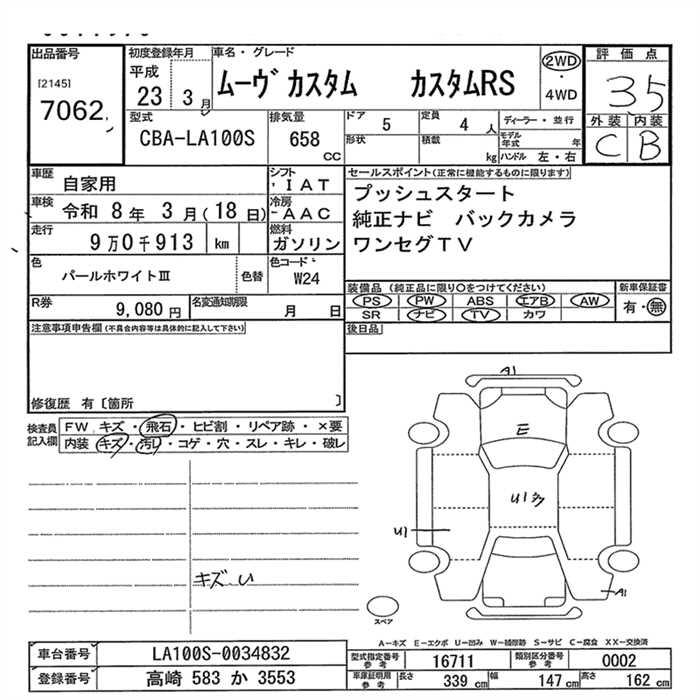 出品番号
[2145]
7062
初度登録年月
平成
23 3月
車名・グレード
ムーヴ カスタム カスタムRS
2WD
・
4WD
評価点
35
外装 内装
C B
型式
CBA-LA100S
排気量
658
CC
ドア
5
定員
4 人
形状
積載
kg
ディーラー・並行
モデル年式 年
ハンドル 左・右
車歴
自家用
シフト
・IAT
車検
令和 8年 3月(18日)
冷房
-AAC
走行
9万0千913 km
燃料
ガソリン
色
パールホワイトⅢ
色替
色コード
W24
R券
9,080円
名変通知期限
月 日
セールスポイント(正常に機能するものに限ります)
プッシュスタート
純正ナビ バックカメラ
ワンセグTV
装備品(純正品に限り○をつけてください)
新車保証書
PS PW ABS エアB AW
SR ナビ TV カワ
有・無
後日品
注意事項申告欄(不具合内容等は具体的に記入して下さい)
修復歴 有〔箇所 〕
検査員記入欄
FW キズ・飛石・ヒビ割・リペア跡・×要
内装 キズ・汚れ・コゲ・穴・スレ・キレ・破レ
キズ い
A1
E
U1
U1
A1
スペア
A-キズ E-エクボ U-凹み W-補修跡 S-サビ C-腐食 XX-交換済
車台番号
LA100S-0034832
登録番号
高崎 583 か 3553
型式指定番号
参考
16711
類別区分番号
参考
0002
車庫証明用
参考
長さ
339 cm
幅
147 cm
高さ
162 cm